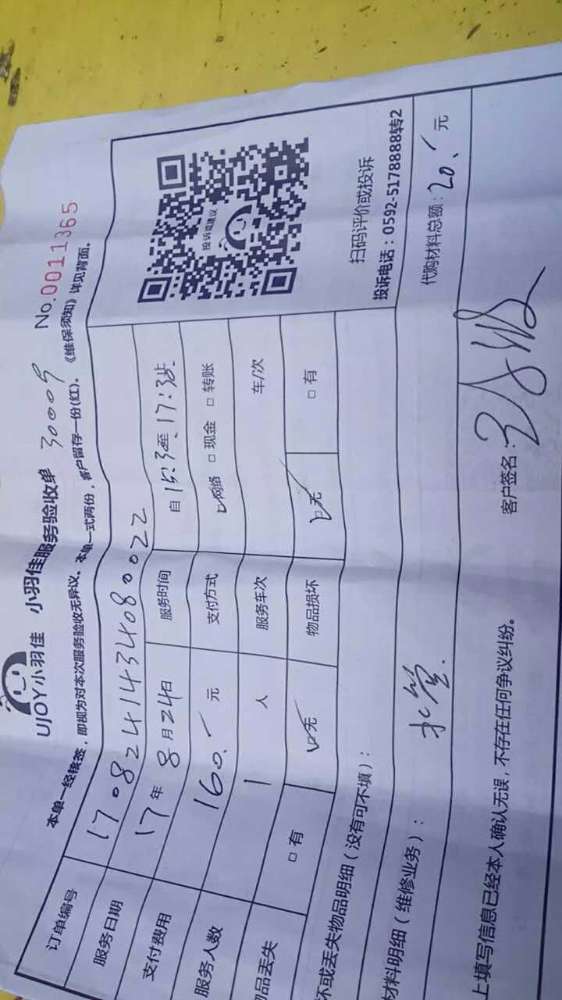 UJOY小羽佳 小羽佳服务验收单 30009 No.0011365
本单一经核签,即视为对本次服务验收无异议。本单一式两份,客户留存一份(红)。《维保须知》详见背面。
订单编号 1708241434080022
服务日期 17年8月24日 服务时间 自15:30至17:30止
支付费用 160.元 支付方式 ☑网络 □现金 □转账
服务人数 1人 服务车次 车/次
品丢失 □有 ☑无 物品损坏 ☑无 □有
投诉或建议
扫码评价或投诉
投诉电话:0592-5178888转2
坏或丢失物品明细(没有可不填):
材料明细(维修业务): 水管. 代购材料总额: 20.元
上填写信息已经本人确认无误,不存在任何争议纠纷。 客户签名: